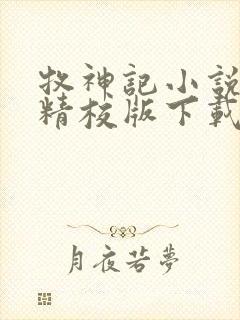 牧神記小說
精校版下載
月夜若夢